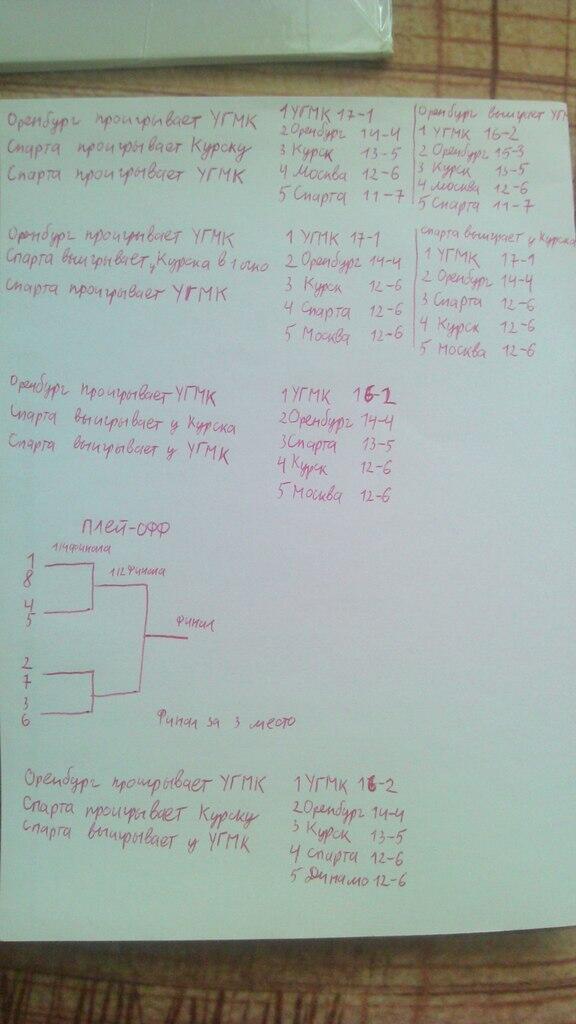 Оренбург проигрывает УГМК
Спарта проигрывает Курску
Спарта проигрывает УГМК
1 УГМК 17-1
2 Оренбург 14-4
3 Курск 13-5
4 Москва 12-6
5 Спарта 11-7
Оренбург выиграет УГМ
1 УГМК 16-2
2 Оренбург 15-3
3 Курск 13-5
4 Москва 12-6
5 Спарта 11-7
Оренбург проигрывает УГМК
Спарта выигрывает у Курска в 1 очко
Спарта проигрывает УГМК
1 УГМК 17-1
2 Оренбург 14-4
3 Курск 12-6
4 Спарта 12-6
5 Москва 12-6
Спарта выиграет у Курска
1 УГМК 17-1
2 Оренбург 14-4
3 Спарта 12-6
4 Курск 12-6
5 Москва 12-6
Оренбург проигрывает УГМК
Спарта выигрывает у Курска
Спарта выигрывает у УГМК
1 УГМК 16-2
2 Оренбург 14-4
3 Спарта 13-5
4 Курск 12-6
5 Москва 12-6
ПЛЕЙ-ОФФ
1/4 финала
1/2 Финала
Финал
1
8
4
5
2
7
3
6
Финал за 3 место
Оренбург проигрывает УГМК
Спарта проигрывает Курску
Спарта выигрывает у УГМК
1 УГМК 16-2
2 Оренбург 14-4
3 Курск 13-5
4 Спарта 12-6
5 Динамо 12-6